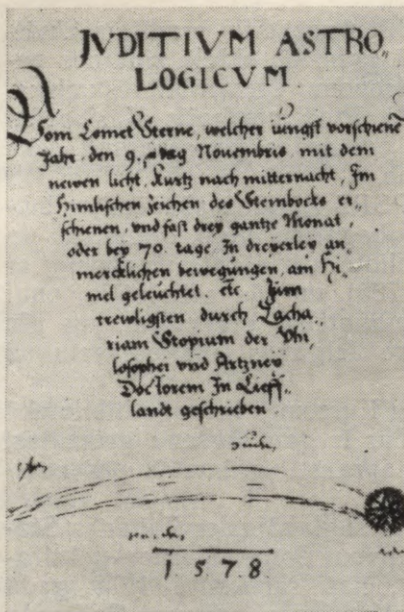 JVDITIVM ASTRO„
LOGICVM
Vom Comet Sterne, welcher iüngst vorschienē
Jahr den 9. tag Nouembris mit dem
newen licht, Kurtz nach mitternacht, Im
Himlischen zeichen des Steinbocks er„
schienen, vnd fast drey gantze Monat,
oder bey 70. tage In dreyerley an„
mercklichen bewegungen, am Hi„
mel geleüchtet. etc.
trewligsten durch Zacha„
riam Stopium der Phi„
losophei vnd Artzney
Doctorem In Lieff„
landt geschrieben
1 5 7 8